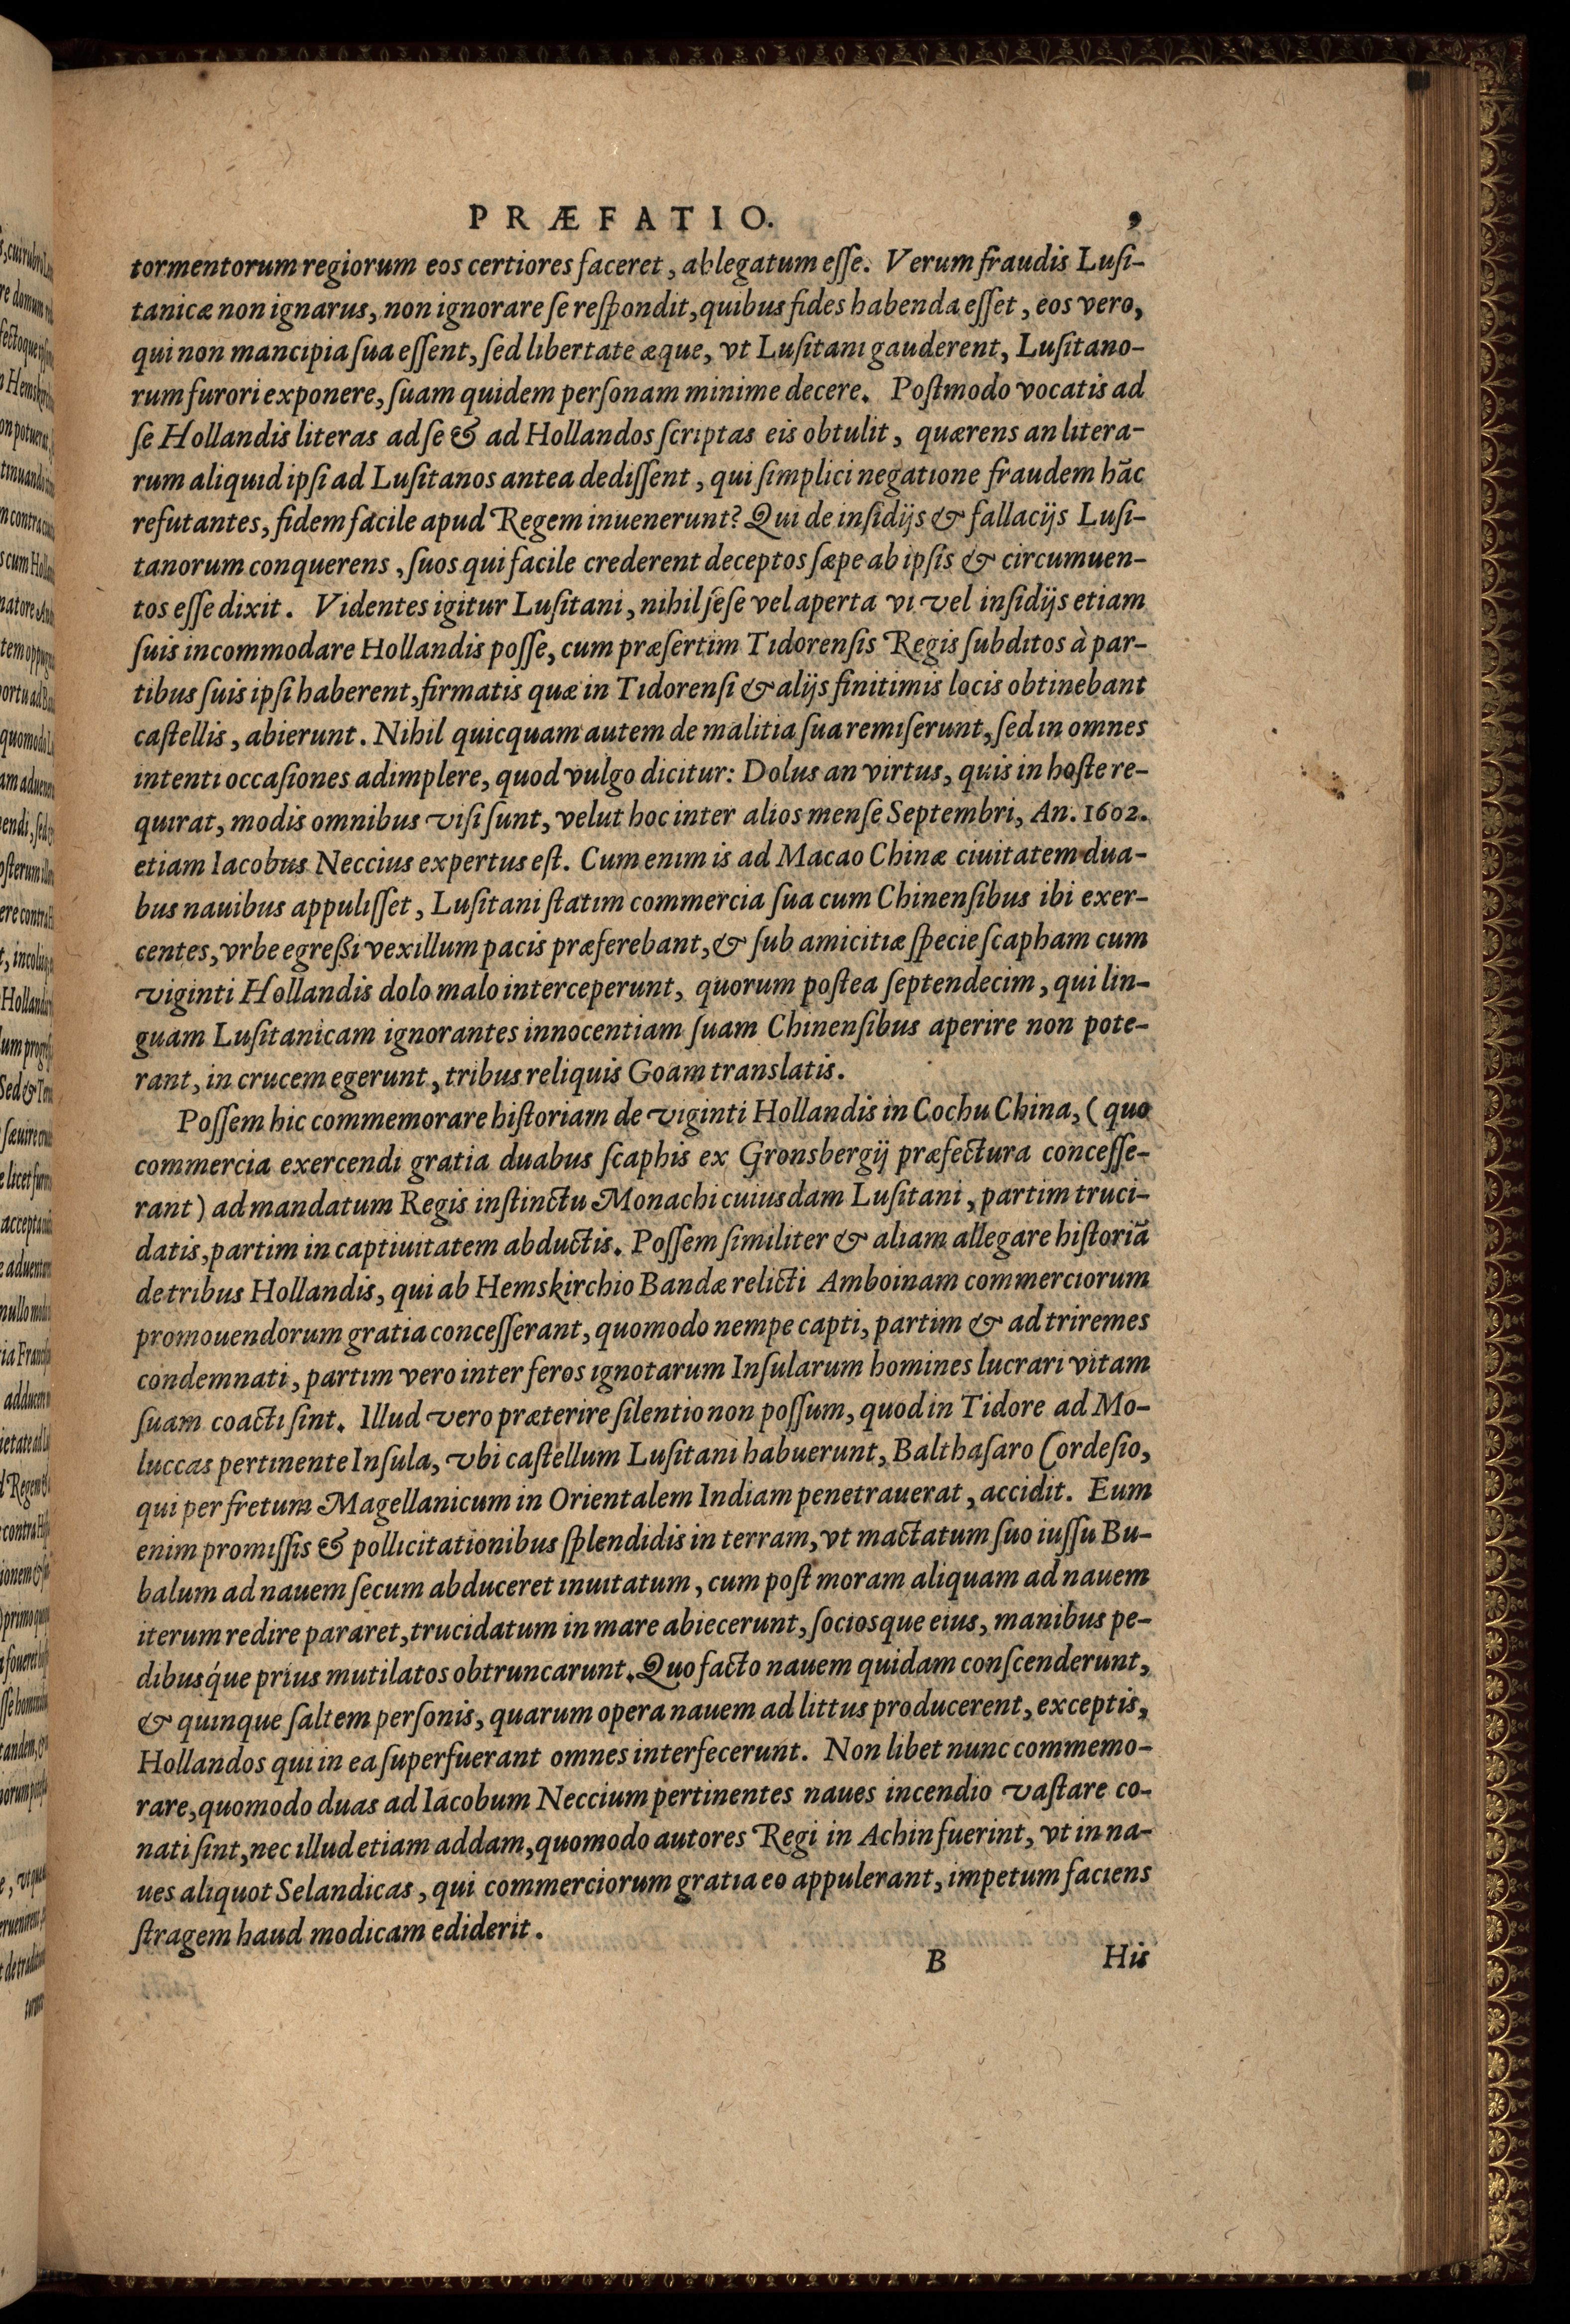 PRÆFATIO. 9
tormentorum regiorum eos certiores faceret, ablegatum eſſe. Verum fraudis Luſi-
tanicæ non ignarus, non ignorare ſe reſpondit, quibus fides habenda eſſet, eos vero,
qui non mancipia ſua eſſent, ſed libertate æque, vt Luſitani gauderent, Luſitano-
rum furori exponere, ſuam quidem perſonam minime decere. Poſtmodo vocatis ad
ſe Hollandis literas ad ſe & ad Hollandos ſcriptas eis obtulit, quærens an litera-
rum aliquid ipſi ad Luſitanos antea dediſſent, qui ſimplici negatione fraudem hãc
refutantes, fidem facile apud Regem inuenerunt? Qui de inſidijs & fallacijs Luſi-
tanorum conquerens, ſuos qui facile crederent deceptos ſæpe ab ipſis & circumuen-
tos eſſe dixit. Videntes igitur Luſitani, nihil ſeſe vel aperta vi vel inſidijs etiam
ſuis incommodare Hollandis poſſe, cum præſertim Tidorenſis Regis ſubditos à par-
tibus ſuis ipſi haberent, firmatis quæ in Tidorenſi & alijs finitimis locis obtinebant
caſtellis, abierunt. Nihil quicquam autem de malitia ſua remiſerunt, ſed in omnes
intenti occaſiones adimplere, quod vulgo dicitur: Dolus an virtus, quis in hoſte re-
quirat, modis omnibus viſi ſunt, velut hoc inter alios menſe Septembri, An. 1602.
etiam Iacobus Neccius expertus eſt. Cum enim is ad Macao Chinæ ciuitatem dua-
bus nauibus appuliſſet, Luſitani ſtatim commercia ſua cum Chinenſibus ibi exer-
centes, vrbe egreßi vexillum pacis præferebant, & ſub amicitiæ ſpecie ſcapham cum
viginti Hollandis dolo malo interceperunt, quorum poſtea ſeptendecim, qui lin-
guam Luſitanicam ignorantes innocentiam ſuam Chinenſibus aperire non pote-
rant, in crucem egerunt, tribus reliquis Goam translatis.
Poſſem hic commemorare hiſtoriam de viginti Hollandis in Cochu China, (quo
commercia exercendi gratia duabus ſcaphis ex Gronsbergij præfectura conceſſe-
rant) ad mandatum Regis inſtinctu Monachi cuiusdam Luſitani, partim truci-
datis, partim in captiuitatem abductis. Poſſem ſimiliter & aliam allegare hiſtoriã
de tribus Hollandis, qui ab Hemskirchio Bandæ relicti Amboinam commerciorum
promouendorum gratia conceſſerant, quomodo nempe capti, partim & ad triremes
condemnati, partim vero inter feros ignotarum Inſularum homines lucrari vitam
ſuam coacti ſint. Illud vero præterire ſilentio non poſſum, quod in Tidore ad Mo-
luccas pertinente Inſula, vbi caſtellum Luſitani habuerunt, Balthaſaro Cordeſio,
qui per fretum Magellanicum in Orientalem Indiam penetrauerat, accidit. Eum
enim promiſſis & pollicitationibus ſplendidis in terram, vt mactatum ſuo iuſſu Bu-
balum ad nauem ſecum abduceret inuitatum, cum poſt moram aliquam ad nauem
iterum redire pararet, trucidatum in mare abiecerunt, ſociosque eius, manibus pe-
dibusq́ue prius mutilatos obtruncarunt. Quo facto nauem quidam conſcenderunt,
& quinque ſaltem perſonis, quarum opera nauem ad littus producerent, exceptis,
Hollandos qui in ea ſuperfuerant omnes interfecerunt. Non libet nunc commemo-
rare, quomodo duas ad Iacobum Neccium pertinentes naues incendio vaſtare co-
nati ſint, nec illud etiam addam, quomodo autores Regi in Achin fuerint, vt in na-
ues aliquot Selandicas, qui commerciorum gratia eo appulerant, impetum faciens
ſtragem haud modicam ediderit.
B His